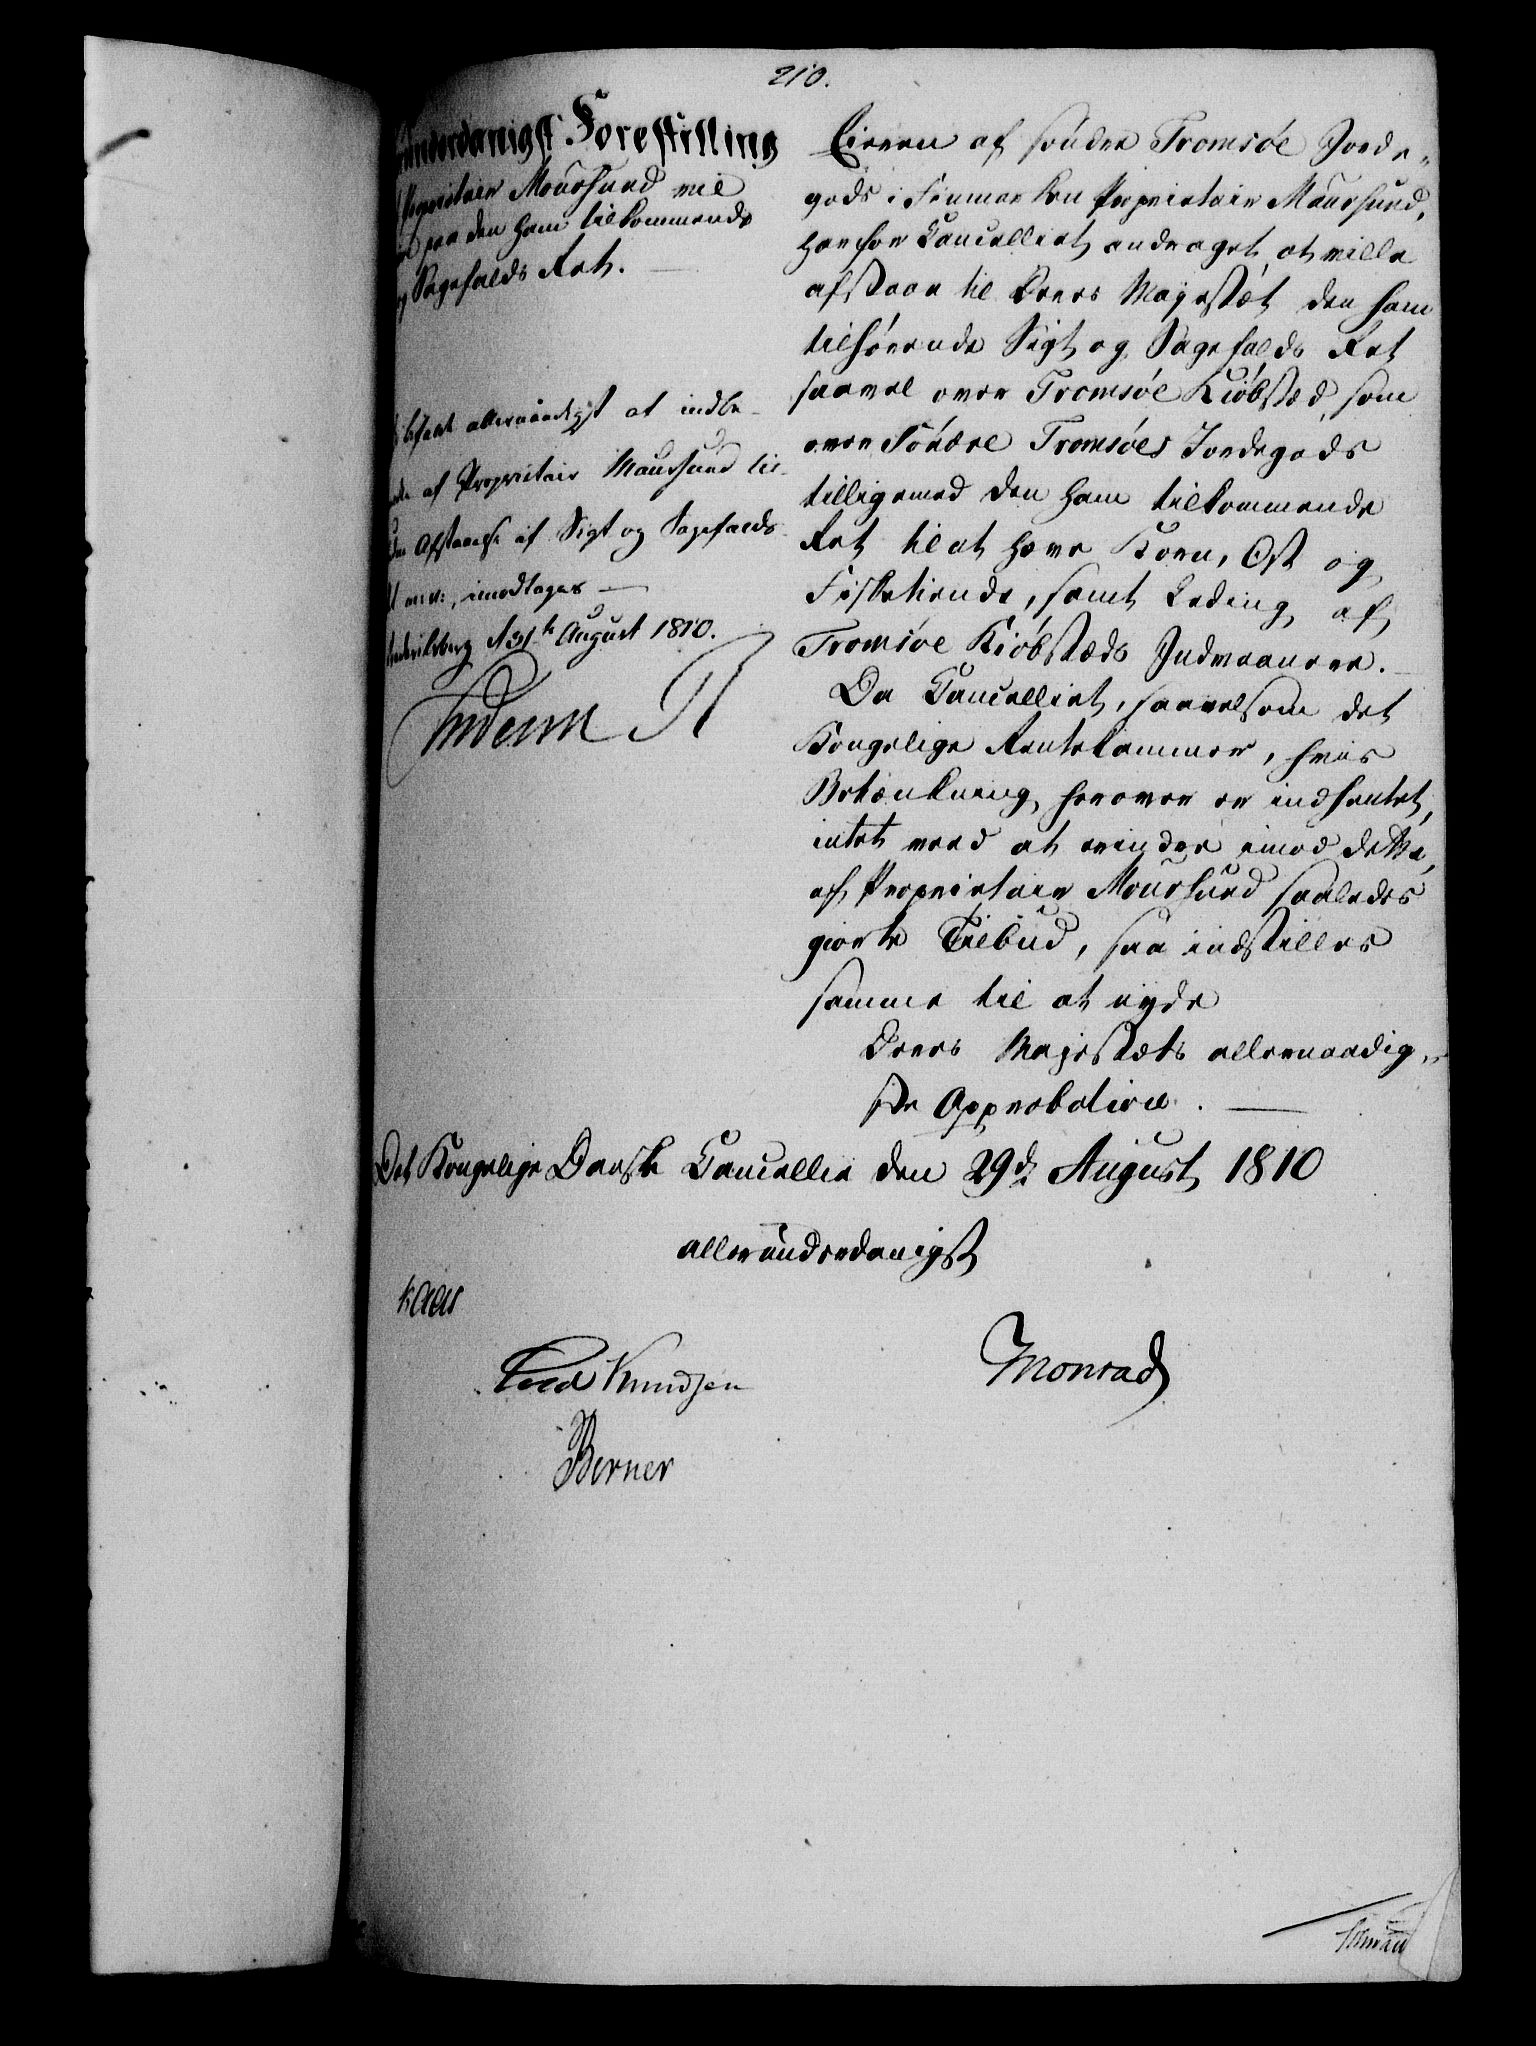 210.
Allerunderdanigst Forestilling
Proprietair Moursund vil
paa den ham tilkommende
og Sagefalds Ret.
befale allernaadigst at indbe-
af Proprietair Moursund til-
Afstaaelse af Sigt og Sagefalds
m: v:, imodtages —
Frederiksberg d 31te August 1810.
Frederik R
Eieren af søndre Tromsøe Jorde-
gods i Finmarken Proprietair Moursund,
har for Cancelliet andraget at ville
afstaae til Deres Majestæt den ham
tilhørende Sigt og Sagefalds Ret
saavel over Tromsøe Kiøbstæd, som
over Søndre Tromsøes Jordegods
tilligemed den ham tilkommende
Ret til at hæve Korn, Ost og
Fisketiende, samt Leding af
Tromsøe Kiøbstæds Indvaanere.
Da Cancelliet, saavelsom det
Kongelige Rentekammer, hvis
Betænkning herover er indhentet,
intet veed at erindre imod dette,
af Proprietair Moursund saaledes
giorte Tilbud, saa indstilles
samme til at nyde
Deres Majestæts allernaadig-
ste Approbation. —
Det Kongelige Danske Cancellie den 29de August 1810
allerunderdanigst
Kaas
Fred Knudsen
Monrad
Berner